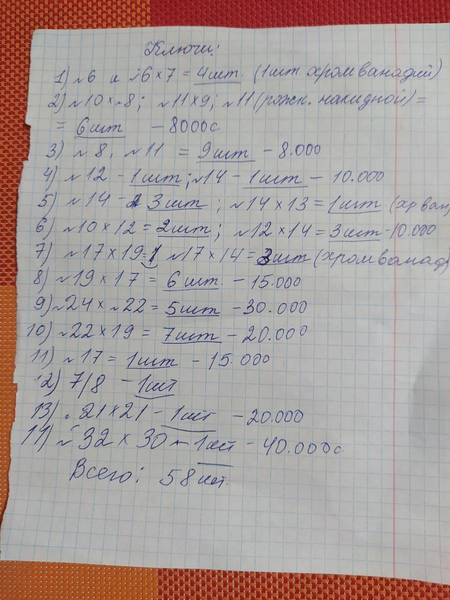 Ключи:
1) №6 и №6х7 = 4шт. (1шт хромванадий)
2) №10х№8; №11х9; №11 (рожк. накидной) =
= 6шт - 8000с
3) №8, №11 = 9шт - 8.000
4) №12 - 1шт; №14 - 1шт - 10.000
5) №14 - 3шт; №14х13 = 1шт (хр ван
6) №10х12 = 2шт; №12х14 = 3шт - 10.000
7) №17х19 = 1 №17х14 = 3шт (хромванад
8) №19х17 = 6шт - 15.000
9) №24х№22 = 5шт - 30.000
10) №22х19 = 7шт - 20.000
11) №17 = 1шт - 15.000
12) 7/8 - 1шт
13) 21х21 - 1шт - 20.000
14) №32х30 - 1шт - 40.000с
Всего: 58шт.